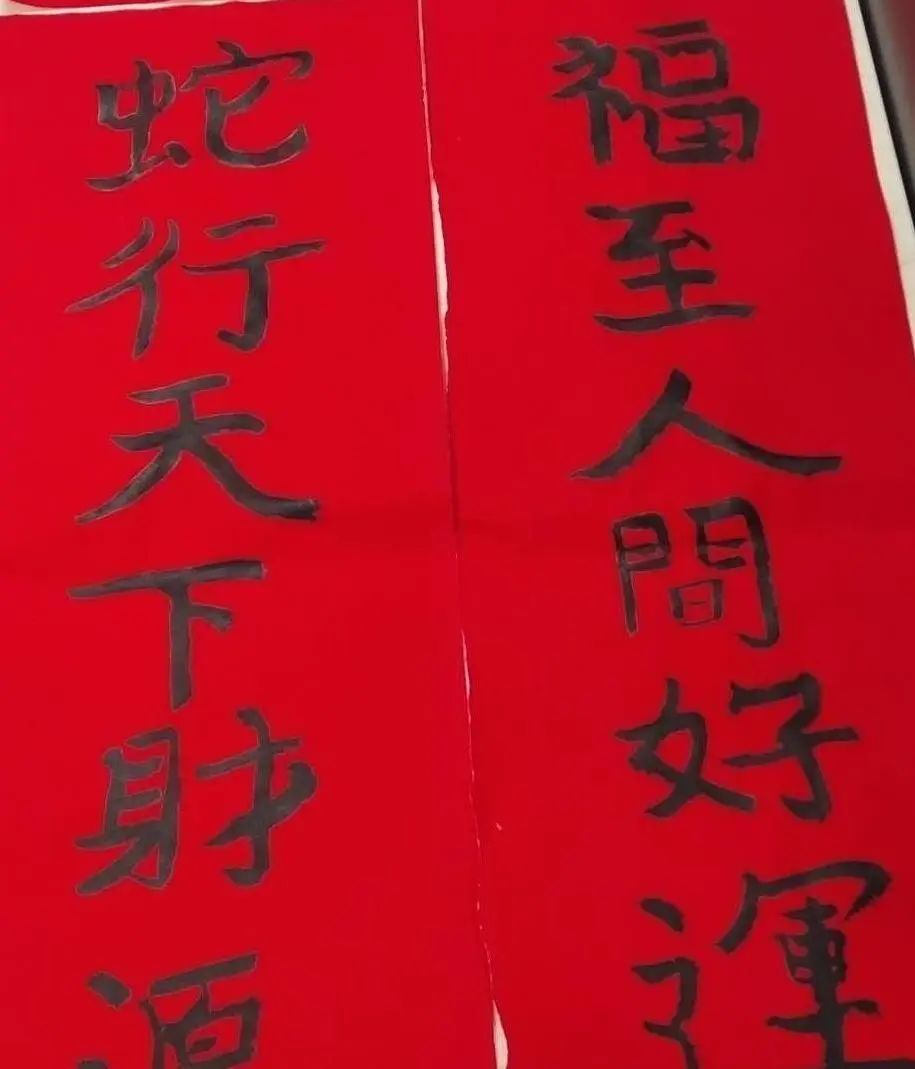 福至人間好運
蛇行天下財源